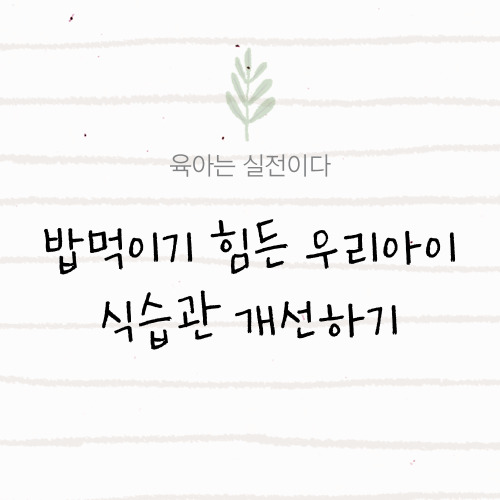 육아는 실전이다
밥먹이기 힘든 우리아이
식습관 개선하기